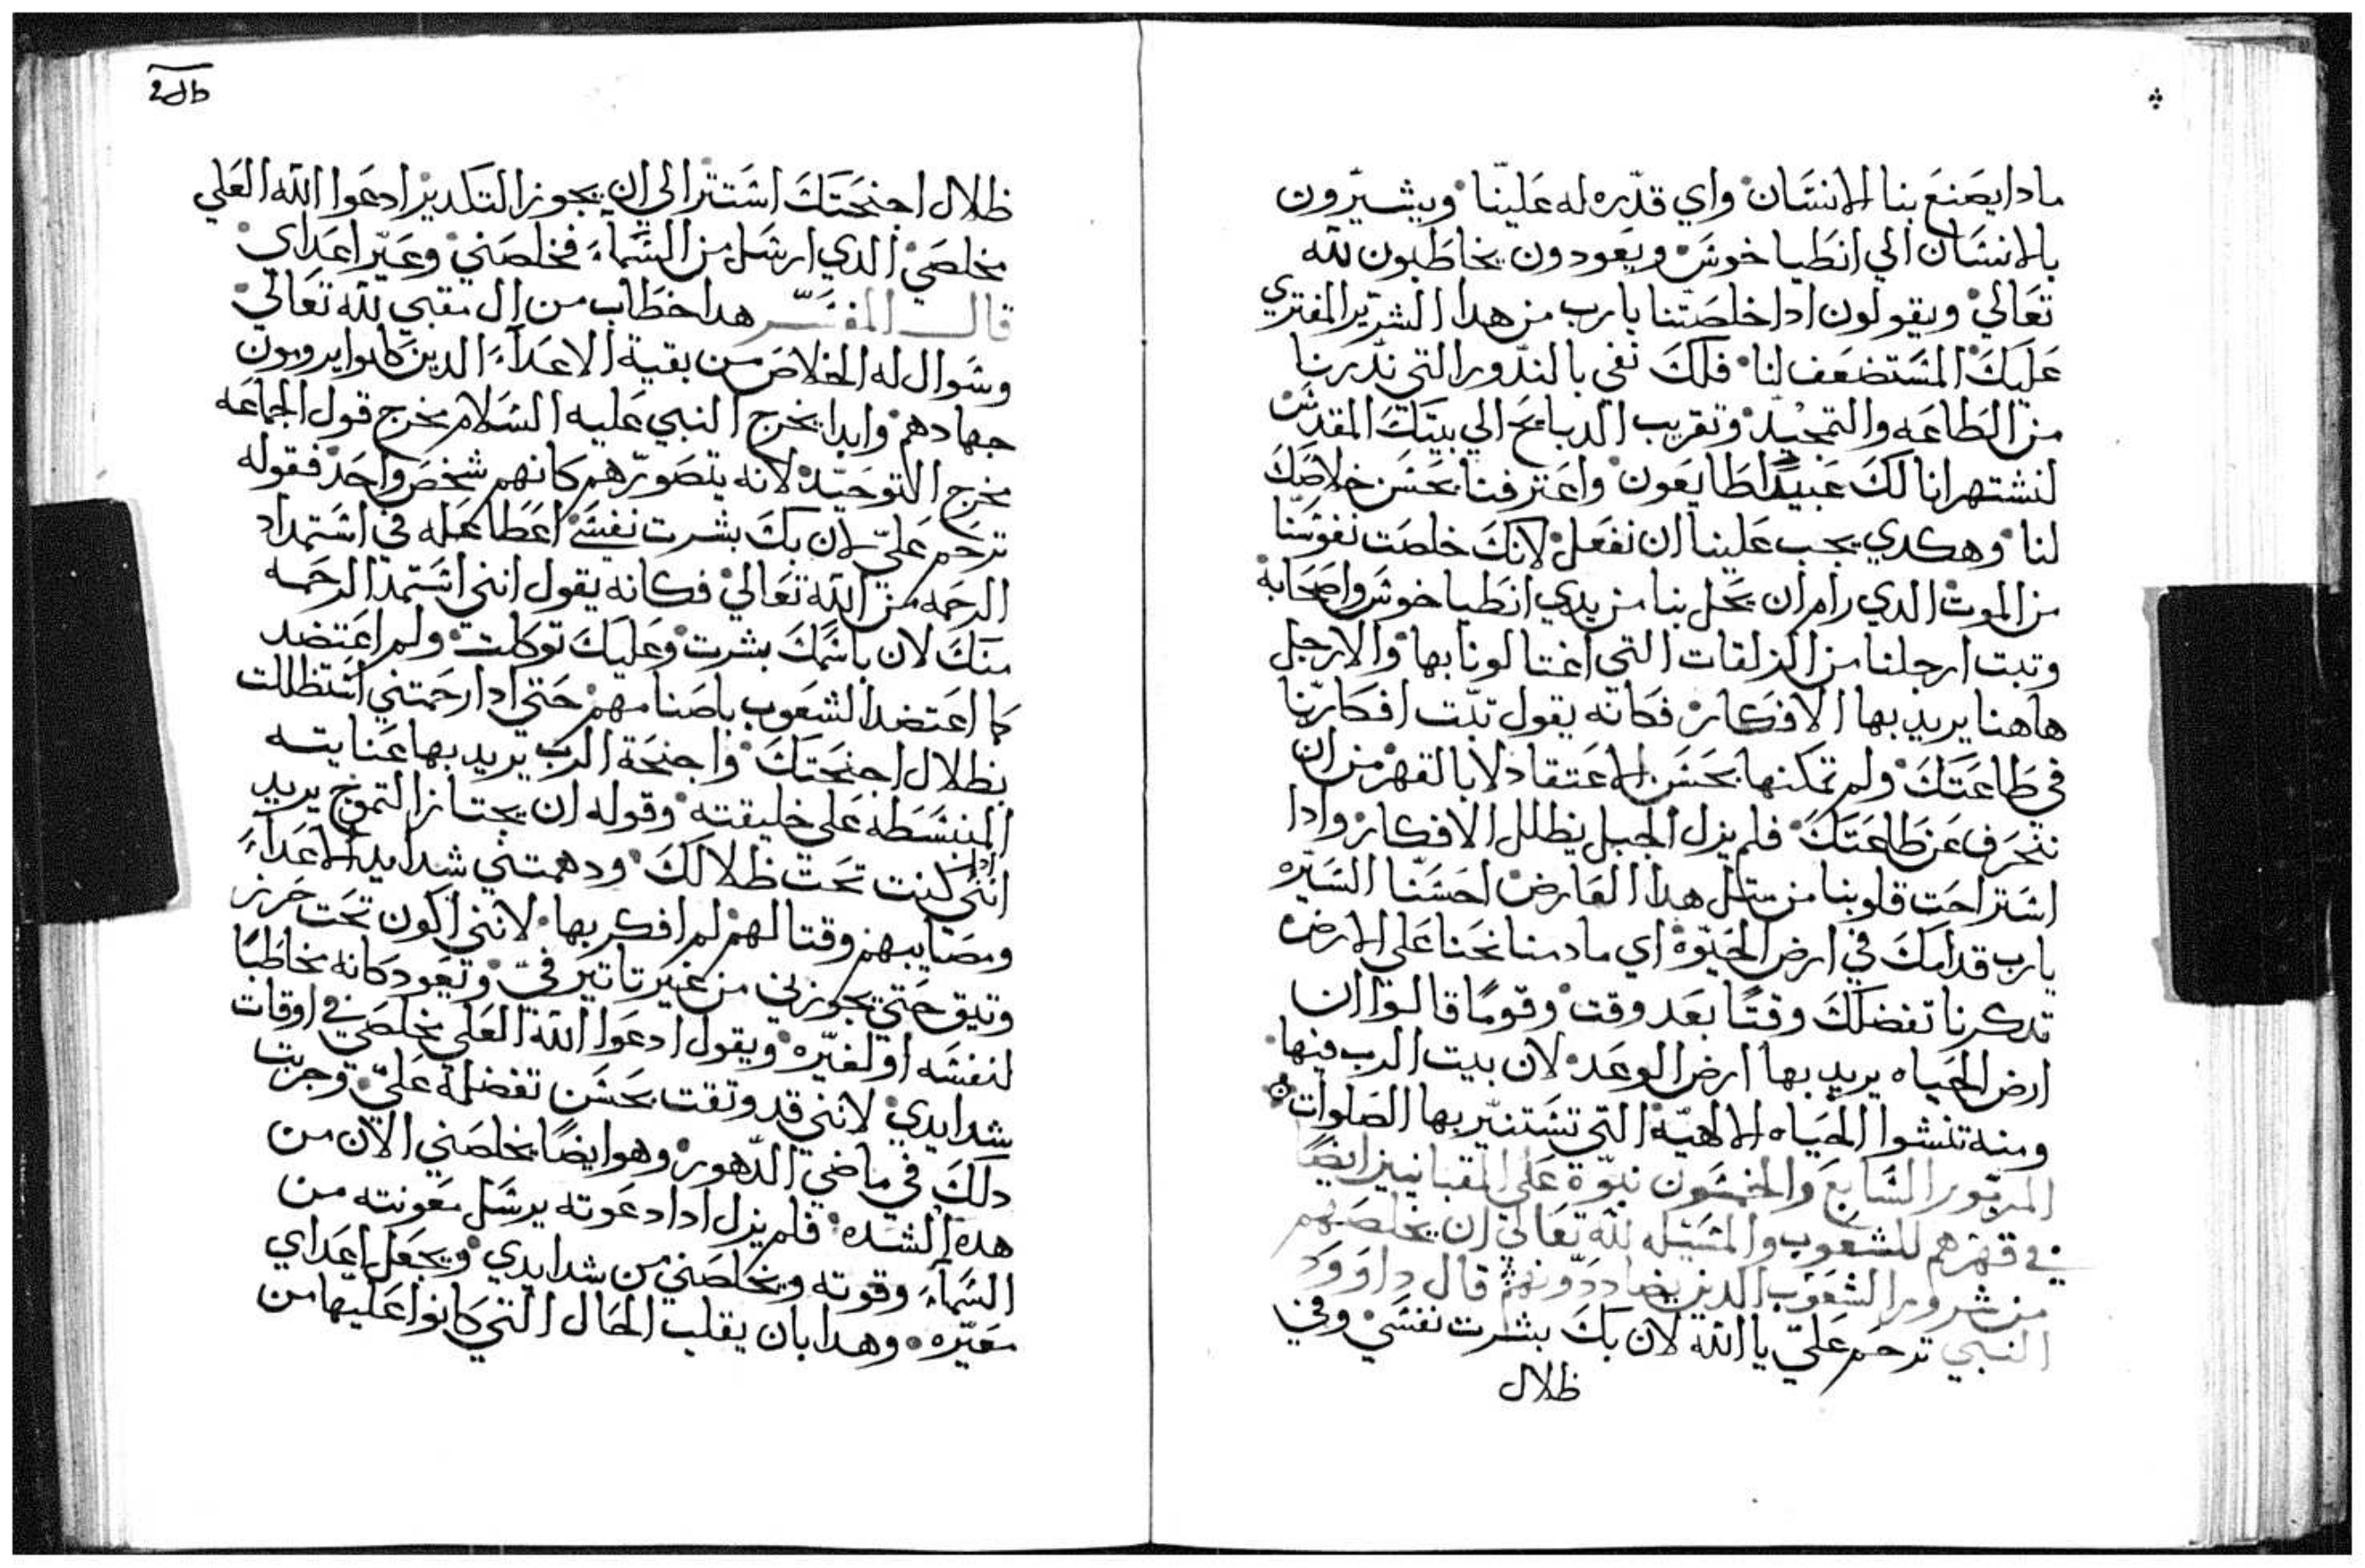 مادا يصَنعَ بنا الانسَان واي قدّره له عَليّنا وييشيرّون
بالانسَان الي انطَيا خوسَ ويعَودون يخاطَبون لله
تعَالي ويقولون ادا خلصَتّنا يا رب من هدا الشرّير المفتري
عَليَكَ المسَتضعَف لنا فلكَ نفي بالندّور التي ندّرنا
من الطَاعَه والتمجيّد وتقريب الدبايح الي بيتَكَ المقدسَ
لنشتهر انا لكَ عَبيدًا طَايعَون واعَترفنا بحَسَن خلاصَكَ
لنا وهكدي يجب عَلينا ان نفعَل لانكَ خلصَت نفوسَنا
من الموت الدي رام ان يحَل بنا من يدي انطَيا خوسَ واصَحَابه
وتبت ارجلنا من الزلقات التي اغتالونا بها والارجل
هاهنا يريد بها الافكار فكانه يقول تبّت افكارنا
في طَاعَتَكَ ولم تمكنها بحَسَن الاعَتقاد لا بالقهر من ان
تنحَرف عَن طَاعَتَكَ فلم يزل الجبل يظلل الافكار وادا
اسَتراحَت قلوبنا من متل هدا العَارض احَسَنّا السَيرّه
يا رب قدامَكَ في ارض الحَيوّه اي ما دمنا نحَنا عَلي الارض
تدكرنا تفضلكَ وقتًا بعَد وقت وقومًا قالوا ان
ارض الحَياه يريد بها ارض الوعَد لان بيت الرب فيها
ومنه تنشوا الحَياه الالهيّه التي تسَتنيّر بها الصَلوات
المزمور السَابعَ والخمسَون نبوّة عَلي المقبانيين ايضًا
في قهرهم للشعَوب والمسَيله لله تعَالي ان يخلصَهم
من شرور الشعَوب الدين يضاددّونهم قال داوود
النبي ترحَم عَليّ يا الله لان بكَ بشرت نفسَي وفي
ظلال
ظلال اجنحَتَكَ اسَتتر الي ان يجوز التكدير ادعَوا الله العَلي
مخلصَي الدي ارسَل من السَمآء فخلصَني وعَيّر اعَداي
قال المفسَّر هدا خطَاب من ال مقبي لله تعَالي
وسَوال له الخلاصَ من بقية الاعَدآء الدين كانوا يرومون
جهادهم وابدا يخرج النبي عَليه السَلام مخرج قول الجماعَه
مخرج التوحَيّد لانه يتصَورّهم كانهم شخصَ واحَد فقوله
ترحَم عَليّ لان بكَ بشرت نفسَي اعَطَا عَله في اسَتمداد
الرحَمه من الله تعَالي فكانه يقول انني اسَتمد الرحَمه
منكَ لان باسَمكَ بشرت وعَليَكَ توكلت ولم اعَتضد
كما اعَتضد الشعَوب باصَنامهم حَتي ادا رحَمتني اسَتظللت
بظلال اجنحَتَكَ واجنحَة الرب يريد بها عَنايته
المنبسَطَه عَلي خليقته وقوله ان يجتاز التموج يريد
انني ادا كنت تحَت ظلالكَ ودهمتني شدايد الاعَدآء
ومصَايبهم وقتا لهم لم افكر بها لانني اكون تحَت حَرز
وتيق حَتي يجوزني من غير تاتير فيّ وتعَود كانه مخاطَبًا
لنفسَه او لغيّره ويقول ادعَوا الله العَلي مخلصَي في اوقات
شدايدي لانني قد وتقت بحَسَن تفضله عَليّ وجربت
دلكَ في ماضي الدّهور وهو ايضًا يخلصَني الان من
هده الشدّه فلم يزل ادا دعَوته يرسَل معَونته من
السَمآء وقوته ويخلصَني من شدايدي ويجعَل اعَداي
معَيّره وهدا بان يقلب الحَال التي كانوا عَليها من